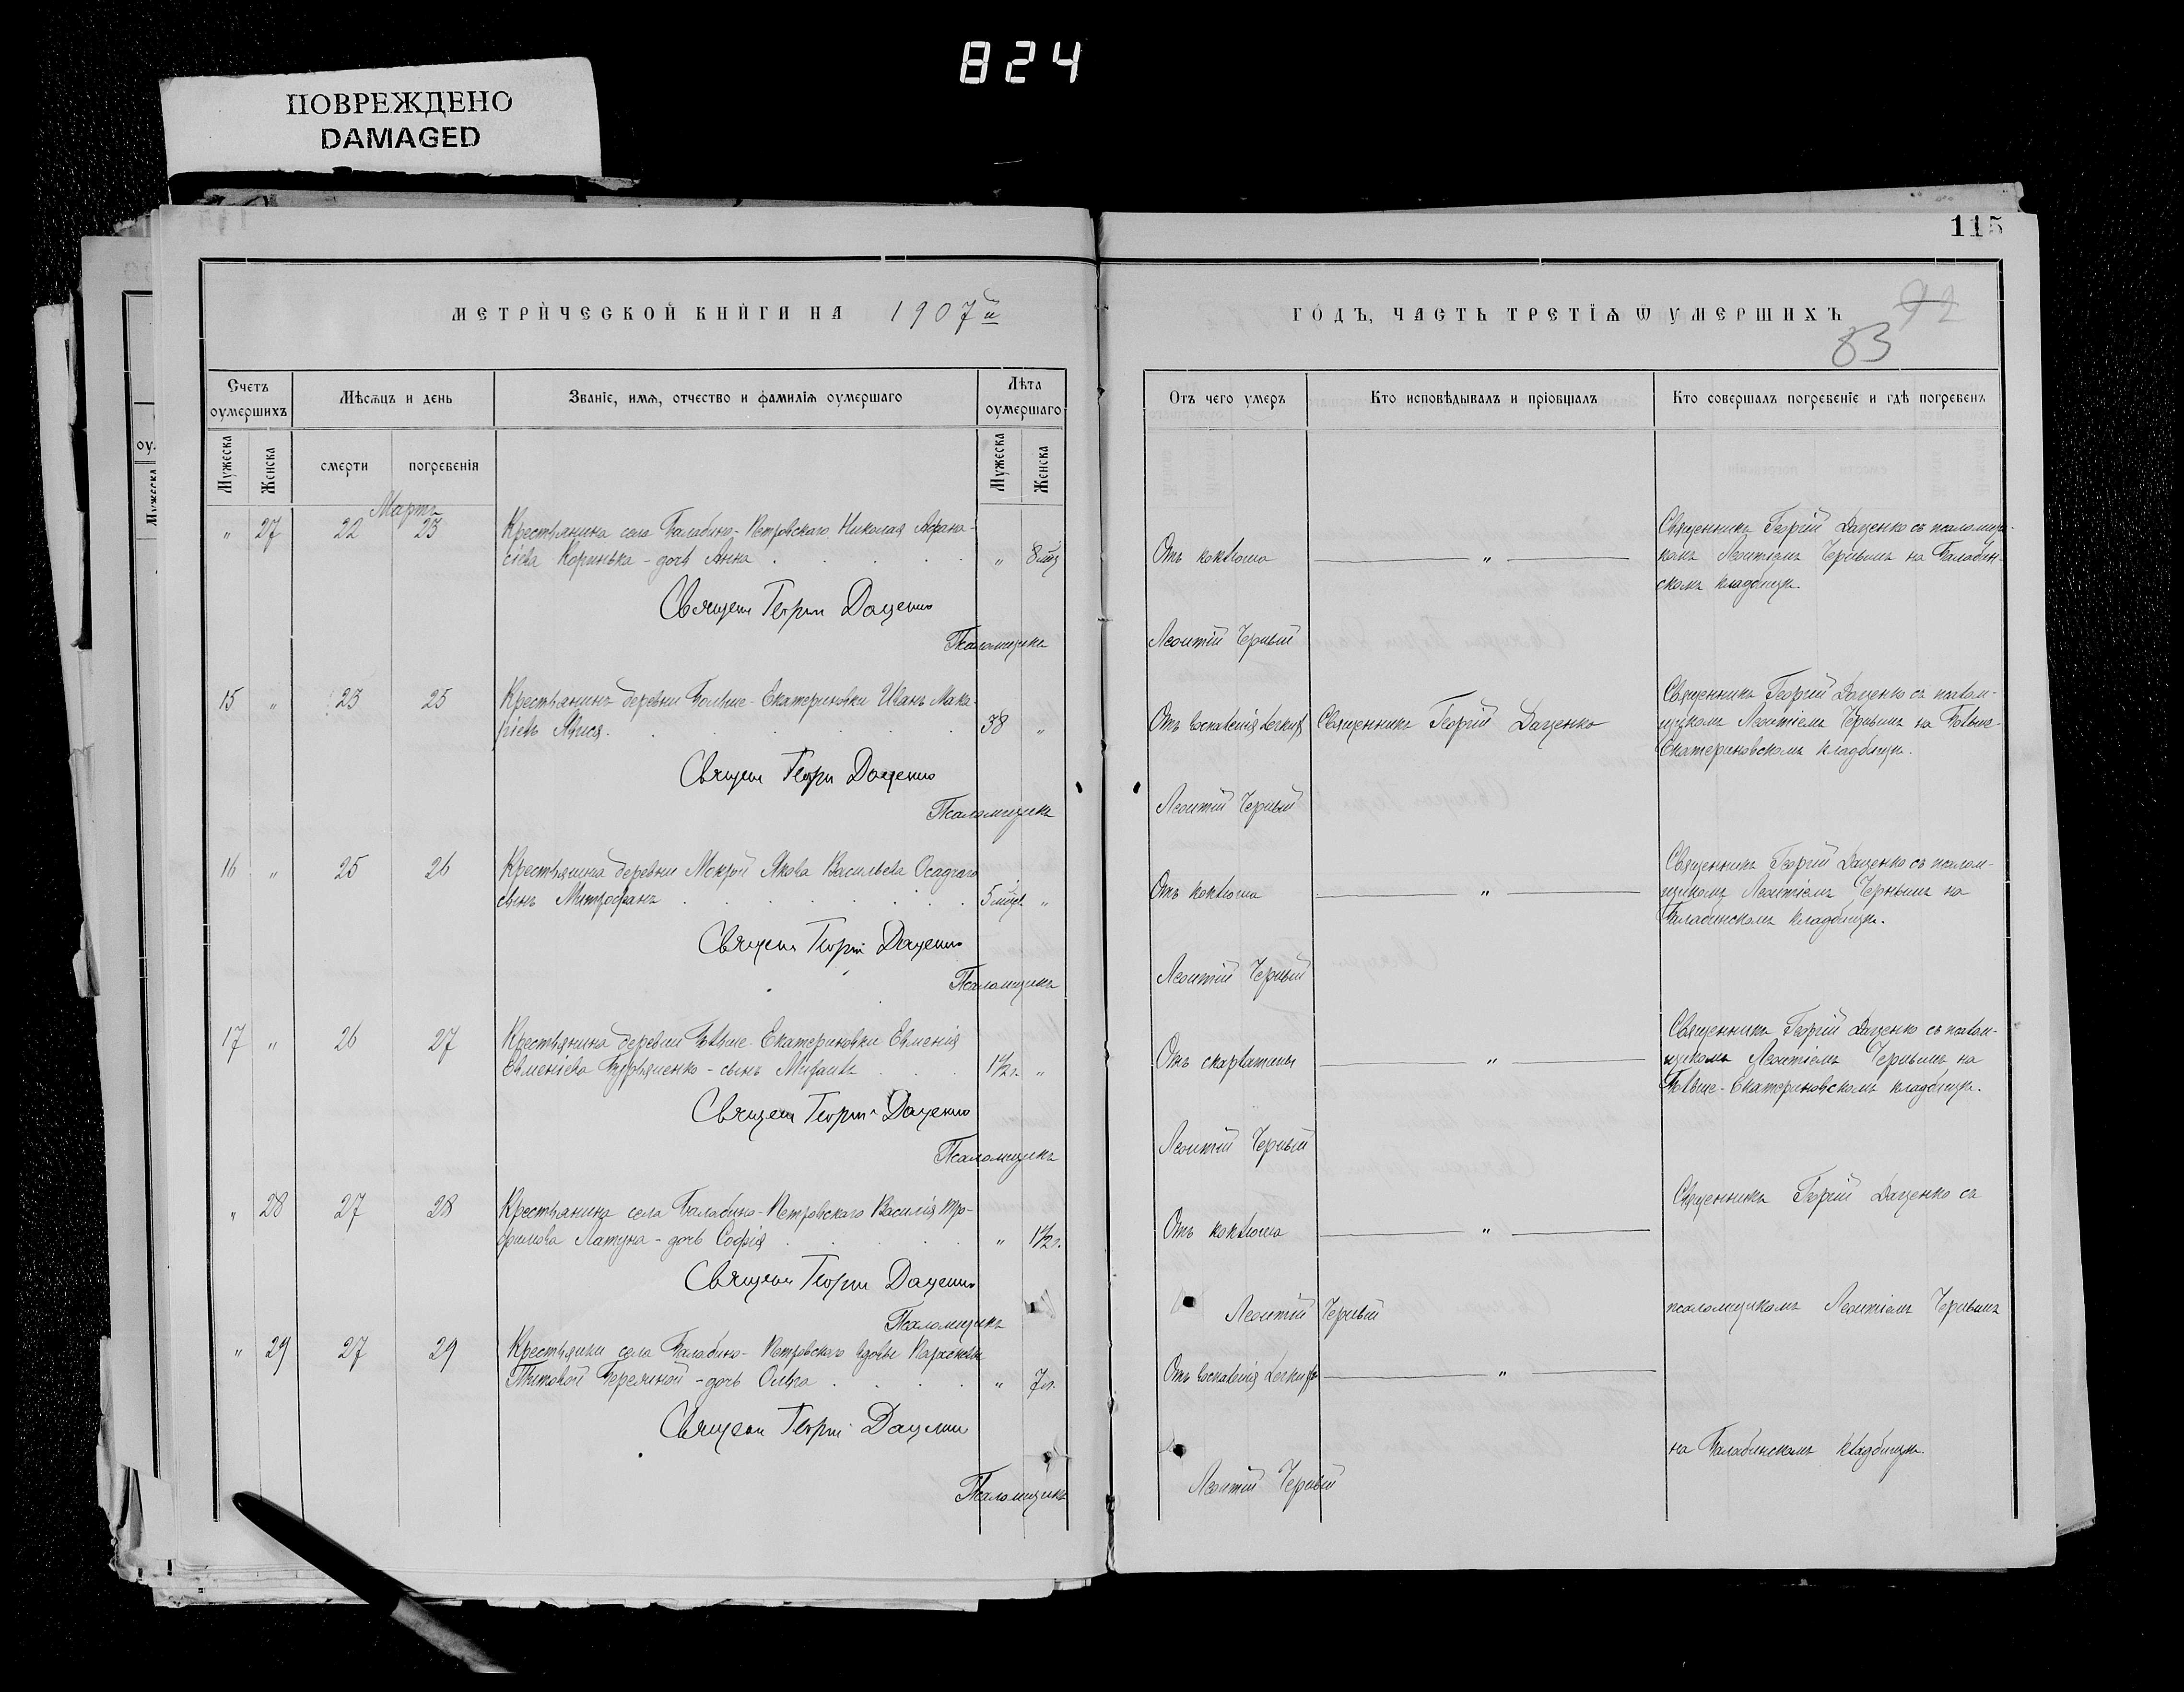 824
ПОВРЕЖДЕНО
DAMAGED
115
МЕТРИ́ЧЕСКОЙ КНИ́ГИ НА 1907й
ГО́ДЪ, ЧАСТЬ ТРЕТЇѦ Ѿ УМЕРШИХЪ
92
83
Счетъ оумершихъ
Мѣсѧцъ и день
Званіе, имѧ, отчество и фамиліѧ оумершаго
Лѣта оумершаго
Отъ чего умеръ
Кто исповѣдывалъ и пріобщалъ
Кто совершалъ погребеніе и гдѣ погребенъ
Мужеска
Женска
смерти
погребенія
Мужеска
Женска
Мартъ
" 27 22 23 Крестьянина села Балабино-Петровскаго Николая Афана-
сіева Коринька - дочь Анна " 8 мѣс
Отъ коклюша "
Священникъ Георгій Даценко съ псаломщи-
комъ Леонтіемъ Чернымъ на Балабин-
скомъ кладбищѣ.
Священ Георгій Даценко
Псаломщикъ Леонтій Черный
15 " 23 25 Крестьянинъ деревни Больше-Екатериновки Иванъ Мака-
ріевъ 38 "
Отъ воспаленія легкихъ Священникъ Георгій Даценко
Священникъ Георгій Даценко съ псалом-
щикомъ Леонтіемъ Чернымъ на Больше-
Екатериновскомъ кладбищѣ.
Священ Георгій Даценко
Псаломщикъ Леонтій Черный
16 " 25 26 Крестьянина деревни Мокрой Якова Васильева Осадчаго
сынъ Митрофанъ 5 мѣс. "
Отъ коклюша "
Священникъ Георгій Даценко съ псалом-
щикомъ Леонтіемъ Чернымъ на
Балабинскомъ кладбищѣ.
Священ Георгій Даценко
Псаломщикъ Леонтій Черный
17 " 26 27 Крестьянина деревни Больше-Екатериновки Евменія
Евменіева Бурьяненко - сынъ 1½ г. "
Отъ скарлатины "
Священникъ Георгій Даценко съ псалом-
щикомъ Леонтіемъ Чернымъ на
Больше-Екатериновскомъ кладбищѣ.
Священ Георгій Даценко
Псаломщикъ Леонтій Черный
" 28 27 28 Крестьянина села Балабино-Петровскаго Василія Тро-
фимова Латуна - дочь Софія " 1½ г.
Отъ коклюша "
Священникъ Георгій Даценко съ
Священ Георгій Даценко
Псаломщикъ Леонтій Черный
псаломщикомъ Леонтіемъ Чернымъ
" 29 27 29 Крестьянки села Балабино-Петровскаго вдовы
Титовой - дочь Ольга " 7 л.
Отъ воспаленія легкихъ "
Священ Георгій Даценко
на Балабинскомъ кладбищѣ.
Псаломщикъ Леонтій Черный